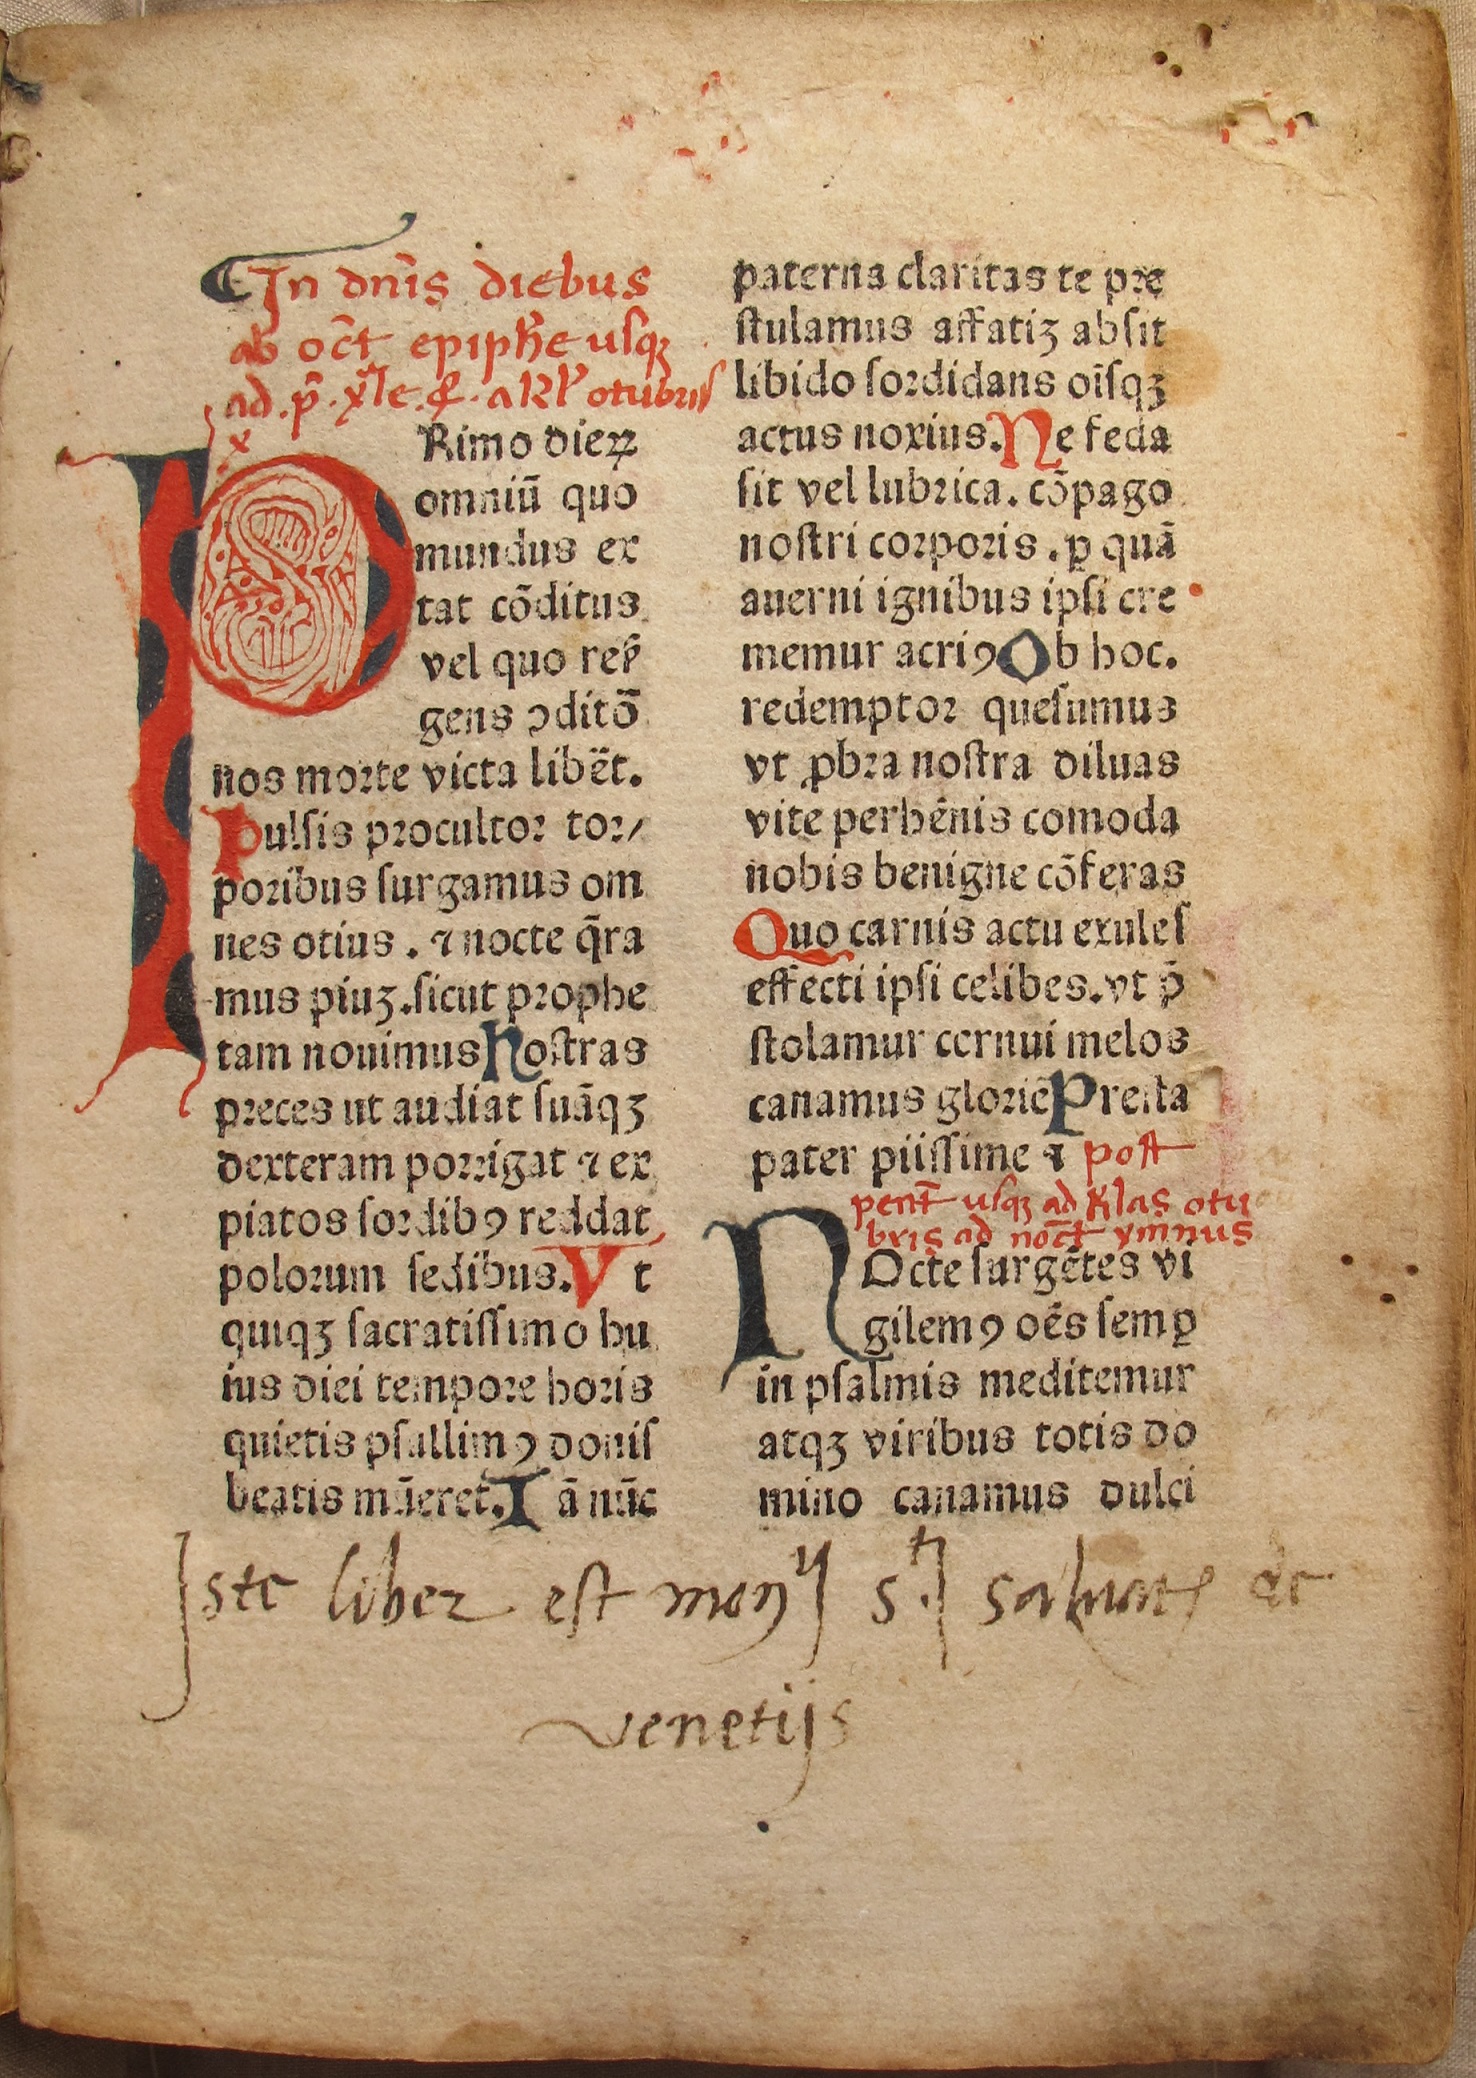 In dnīs diebus
ab oct̄ epiphē usqꝫ
ad p̄ xle & a kl' otubris
x
PRimo dieꝝ
omniū quo
mundus ex
tat cōditus
vel quo reſ
gens ↄditō
nos morte victa libēt.
Pulſis procultor tor/
poribus ſurgamus om
nes otius. ⁊ nocte q̄ra
mus piuꝫ. ſicut prophe
tam nouimus Noſtras
preces ut audiat ſuāqꝫ
dexteram porrigat ⁊ ex
piatos ſordibꝯ reddat
polorum ſedibus. Vt
quiqꝫ ſacratiſſimo hu
ius diei tempore horis
quietis pſallimꝯ donis
beatis mūeret. Iā nūc
paterna claritas te pre
ſtulamus affatiꝫ abſit
libido ſordidans oīſqꝫ
actus noxius. Ne feda
ſit vel lubrica. cōpago
noſtri corporis. ꝑ quā
auerni ignibus ipſi cre
memur acriꝯ Ob hoc.
redemptor queſumus
vt ꝓbra noſtra diluas
vite perhēnis comoda
nobis benigne cōferas
Quo carnis actu exuleſ
effecti ipſi celibes. vt p̄
ſtolamur cernui melos
canamus glorie Preſta
pater piiſſime ⁊ poſt
pent̄ uſqꝫ ad klas otu
bris ad noct̄ ymnus
NOcte ſurgētes vi
gilemꝯ oēs ſemꝑ
in pſalmis meditemur
atqꝫ viribus totis do
mino canamus dulci
Iste liber est monrij S.ti Salvat de
venetijs